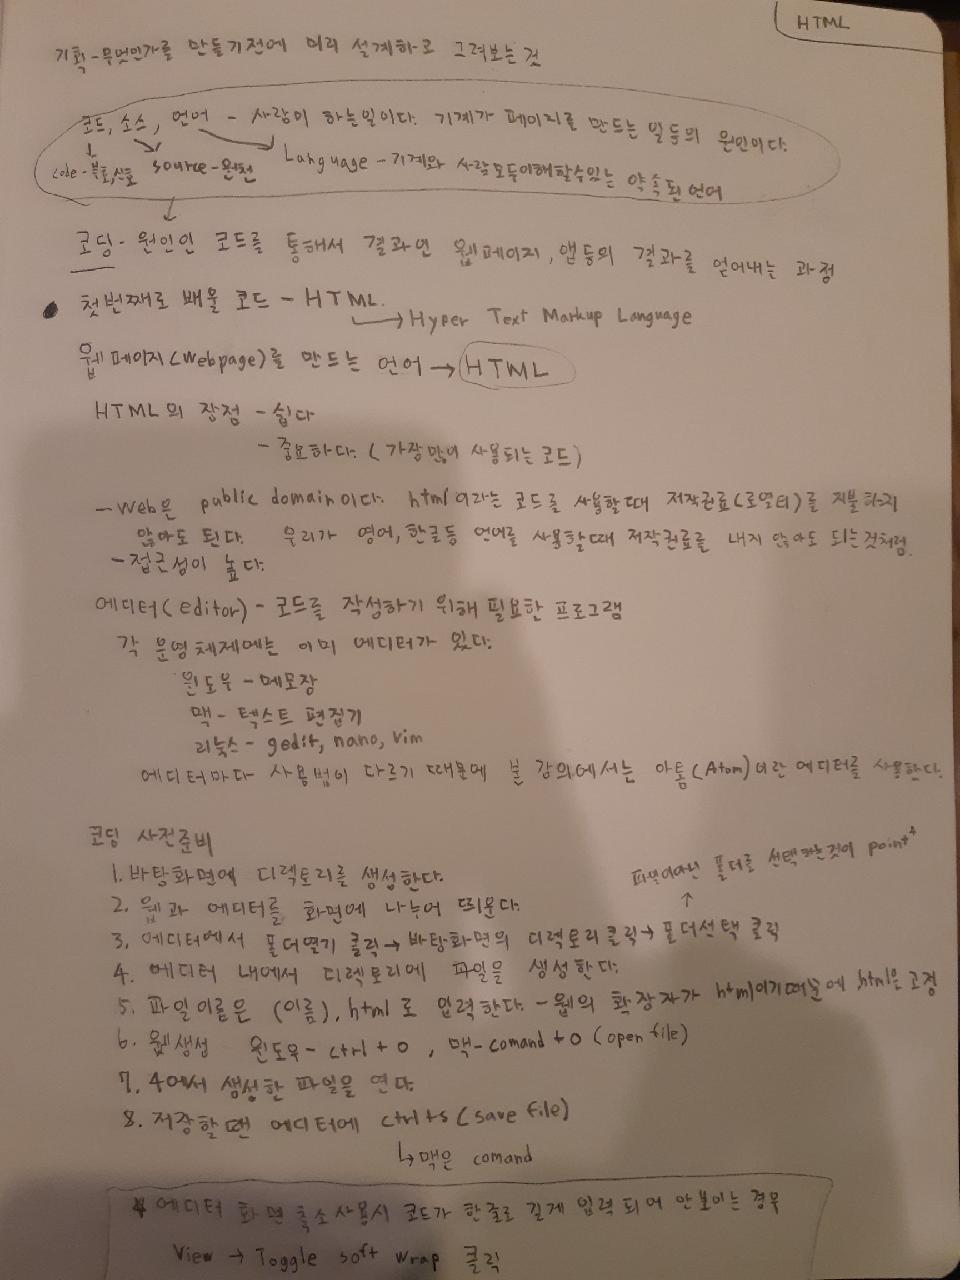 HTML
기획 - 무엇인가를 만들기전에 미리 설계하고 그려보는 것
코드, 소스, 언어 - 사람이 하는일이다. 기계가 페이지를 만드는 일등의 원인이다.
code - 부호,신호 source - 원천 Language - 기계와 사람모두이해할수있는 약속된 언어
코딩 - 원인인 코드를 통해서 결과인 웹페이지, 앱등의 결과를 얻어내는 과정
첫번째로 배울 코드 - HTML.
→ Hyper Text Markup Language
웹페이지(webpage)를 만드는 언어 → HTML
HTML의 장점 - 쉽다
- 중요하다. (가장많이 사용되는 코드)
- Web은 public domain이다. html이라는 코드를 사용할때 저작권료(로열티)를 지불하지
않아도 된다. 우리가 영어, 한글등 언어를 사용할때 저작권료를 내지 않아도 되는것처럼.
- 접근성이 높다.
에디터(editor) - 코드를 작성하기 위해 필요한 프로그램
각 운영체제에는 이미 에디터가 있다.
윈도우 - 메모장
맥 - 텍스트 편집기
리눅스 - gedit, nano, vim
에디터마다 사용법이 다르기 때문에 본 강의에서는 아톰(Atom)이란 에디터를 사용한다.
코딩 사전준비
1. 바탕화면에 디렉토리를 생성한다.
파일이아닌 폴더를 선택하는것이 point
2. 웹과 에디터를 화면에 나누어 띄운다.
3. 에디터에서 폴더열기 클릭 → 바탕화면의 디렉토리클릭 → 폴더선택 클릭
4. 에디터 내에서 디렉토리에 파일을 생성한다.
5. 파일이름은 (이름).html로 입력한다. - 웹의 확장자가 html이기때문에 html은 고정
6. 웹생성 윈도우 - ctrl + o , 맥 - comand + o (open file)
7. 4에서 생성한 파일을 연다.
8. 저장할땐 에디터에 ctrl+s (save file)
↳ 맥은 comand
* 에디터 화면 축소사용시 코드가 한줄로 길게 입력되어 안보이는 경우
View → Toggle soft wrap 클릭